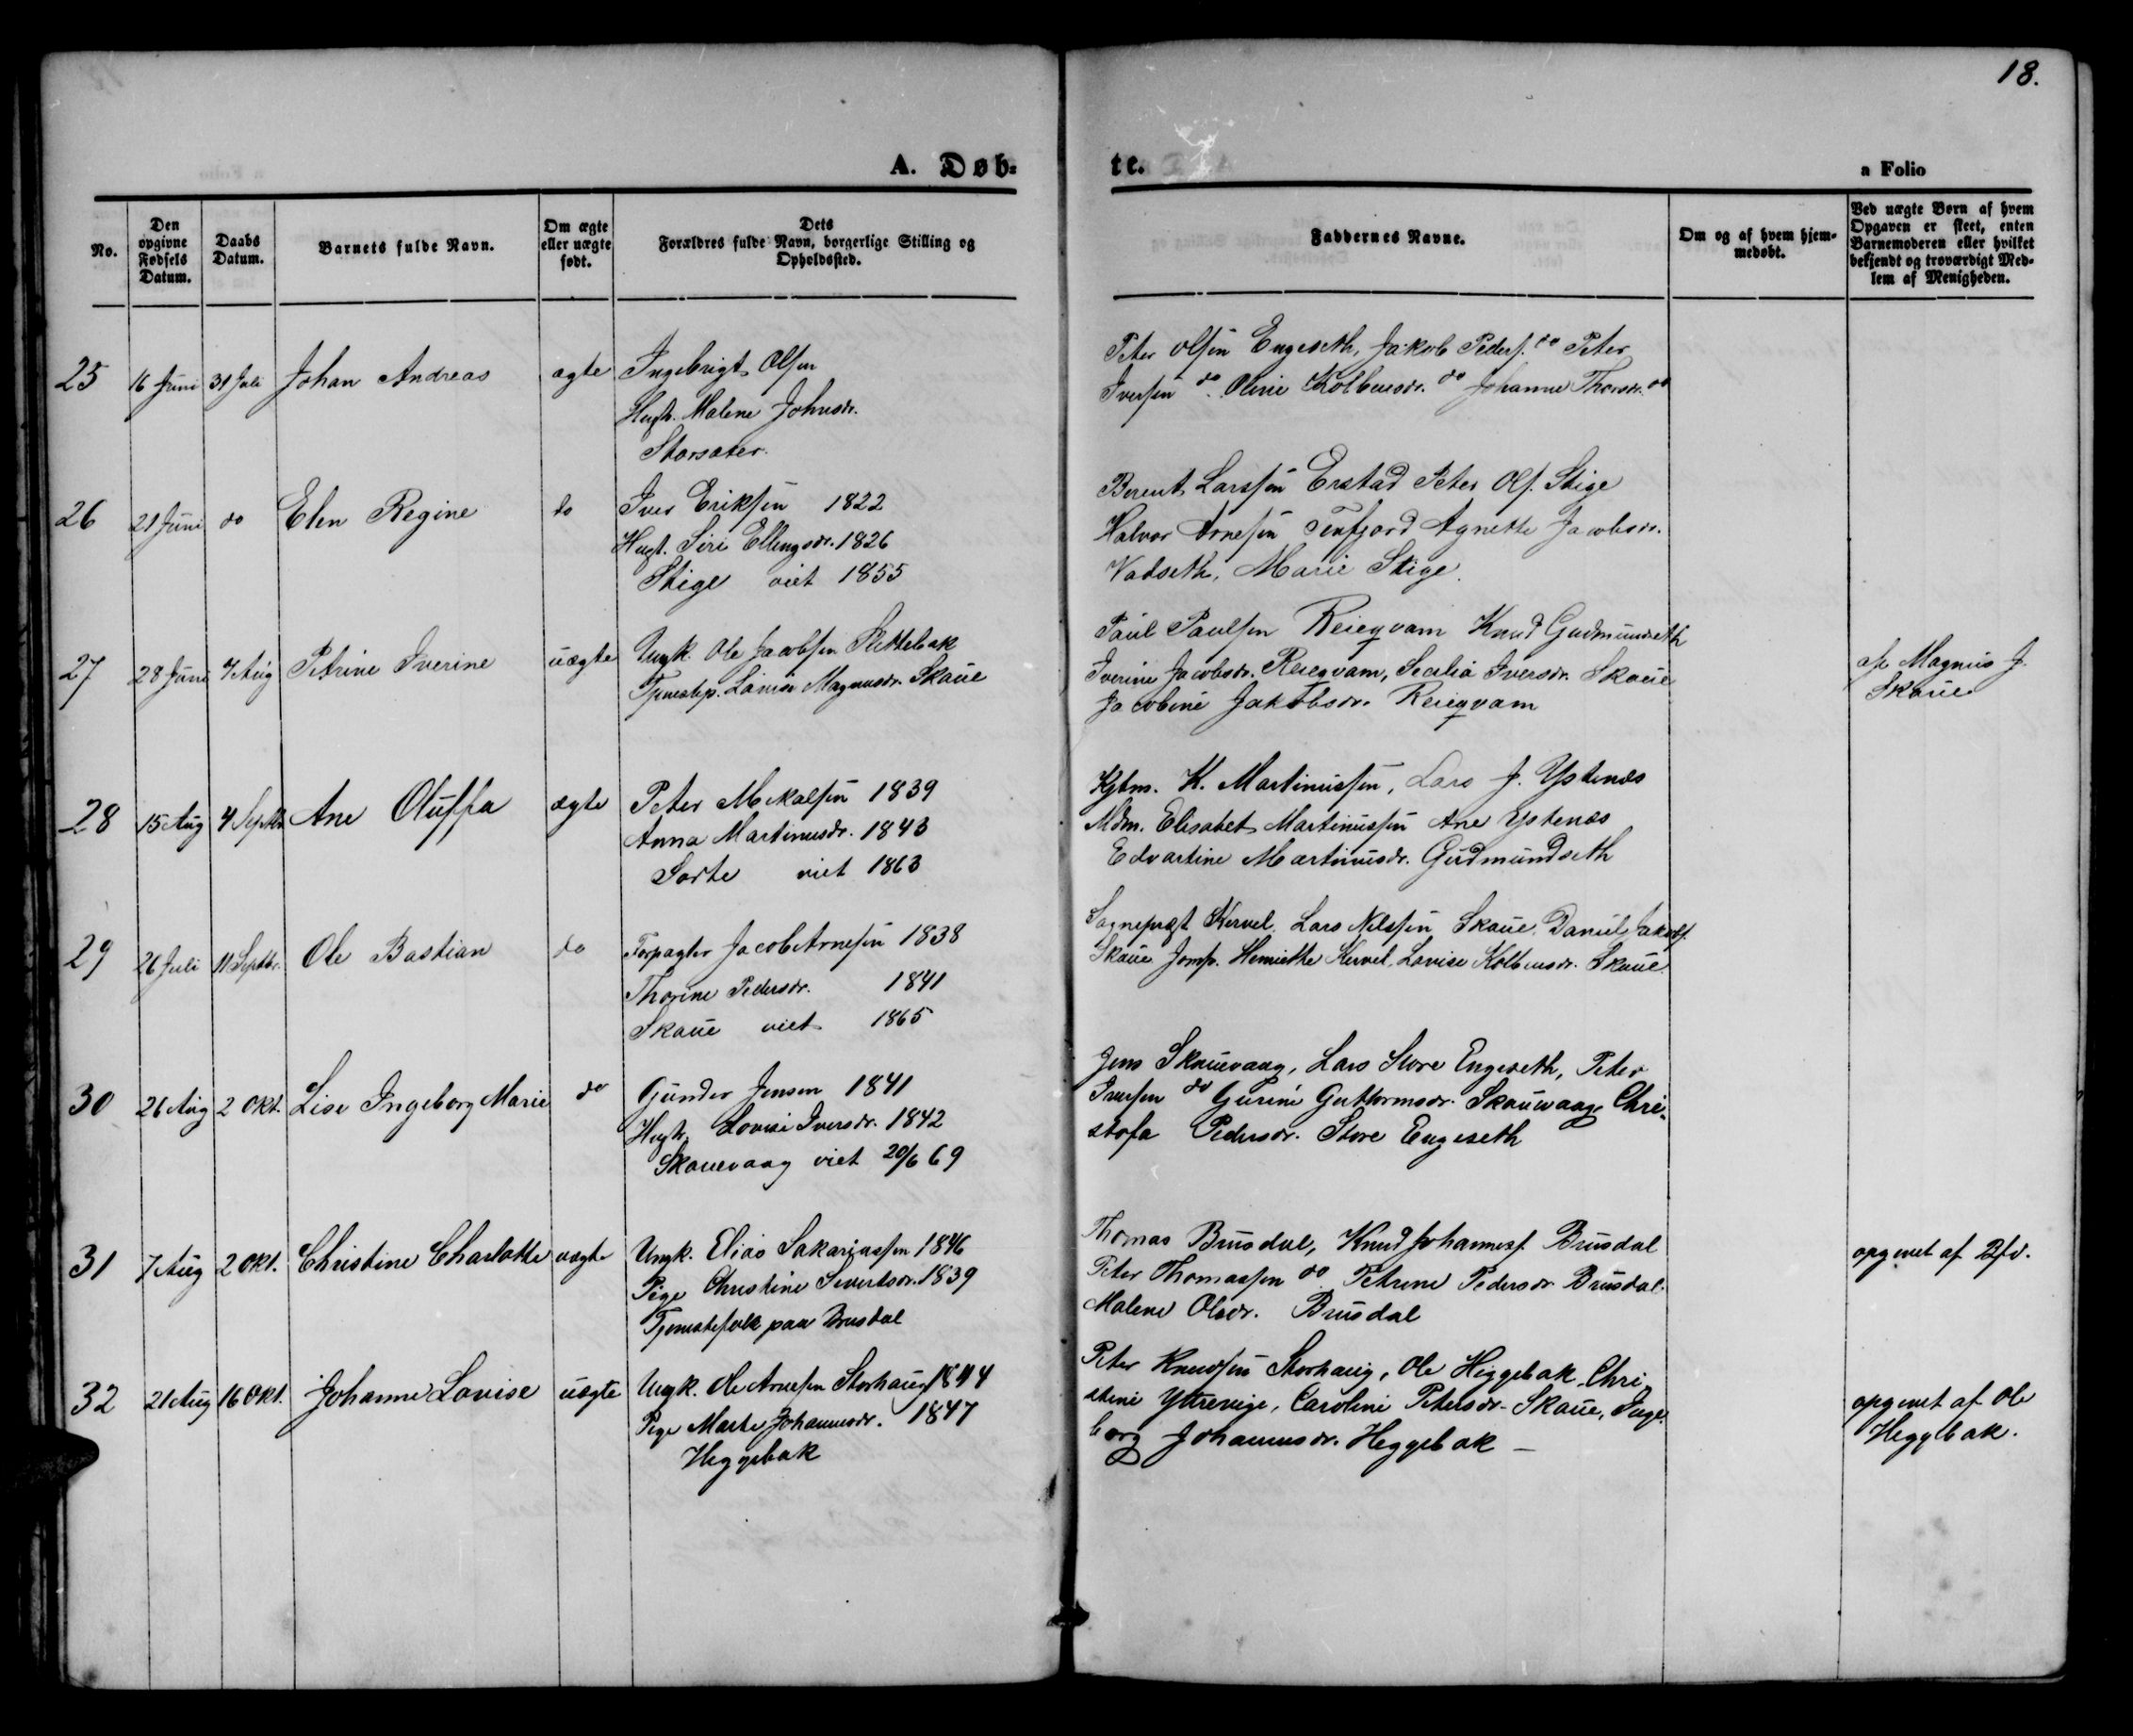 18.
A. Døb-
te.
a Folio
No.
Den opgivne Fødsels Datum.
Daabs Datum.
Barnets fulde Navn.
Om ægte eller uægte født.
Dets Forældres fulde Navn, borgerlige Stilling og Opholdssted.
Faddernes Navne.
Om og af hvem hjemmedøbt.
Ved uægte Børn af hvem Opgaven er skeet, enten Barnemoderen eller hvilket bekjendt og troværdigt Medlem af Menigheden.
25 16 Juni 31 Juli Johan Andreas ægte Ingebrigt Olsen
Hugt. Malene Johnsdr.
Storsæter.
Peter Olsen Engeseth, Jakob Peders. do Peter
Iversen do. Oline Kolbensdr. do Johanne Thorsdr. do
26 21 Juni do Elen Regine do Iver Eriksen 1822
Hugt. Siri Ellingsdr. 1826
Stige viet 1855
Berent Larssen Erstad Peter Ols. Stige
Halvor Arnesen Tenfjord Agnette Jacobsdr.
Vadseth, Marie Stige.
27 28 Juni 7 Aug Petrine Iverine uægte Ungk. Ole Jacobsen Slettebak
Tjenestep. Lovise Magnusdr. Skaue
Paul Paulsen Reieqvam Knud Gudmundseth
Iverine Jacobsdr. Reieqvam, Secilia Iversdr. Skaue
Jacobine Jakobsdr. Reieqvam
af Magnus J.
Skaue
28 15 Aug 4 Septbr Ane Oluffa ægte Peter Mikalsen 1839
Anna Martinusdr. 1843
Sorte viet 1863
Kjbm. K. Martinussen, Lars J. Ystenæs
Mdm. Elisabet Martinussen Ane Ystenæs
Edvartine Martinusdr. Gudmundseth
29 26 Juli 11 Septbr. Ole Bastian do Forpagter Jacob Arnesen 1838
Thorine Pedersdr. 1841
Skaue viet 1865
Sognepræst Kervel. Lars Nilssen Skaue. Daniel Jakobs.
Skaue Jomf. Henriette Kervel. Lovise Kolbensdr. Skaue
30 26 Aug 2 Okt. Lise Ingeborg Marie do Gunder Jensen 1841
Hugt. Lovise Iversdr. 1842
Skauevaag viet 20/6 69
Jens Skauevaag, Lars Store Engeseth, Peter
Iversen do Gurine Guttormsdr. Skauevaag Chri-
stofa Pedersdr. Store Engeseth
31 7 Aug 2 Okt. Christine Charlotte uægte Ungk. Elias Sakariassen 1846
Pige Christine Sivertsdr. 1839
Tjenestefolk paa Brusdal
Thomas Brusdal, Knud Johanness. Brusdal
Peter Thomassen do Petrine Pedersdr Brusdal.
Malene Olsdr. Brusdal
opgivet af
32 21 Aug 16 Okt. Johanne Lovise uægte Ungk. Ole Arnesen Storhaug 1844
Pige Marte Johannesdr. 1847
Heggebak
Peter Knudsen Storhaug, Ole Heggebak. Chri-
stine Yttrevige, Caroline Petersdr. Skaue, Inge-
borg Johannesdr. Heggebak —
opgivet af Ole
Heggebak.